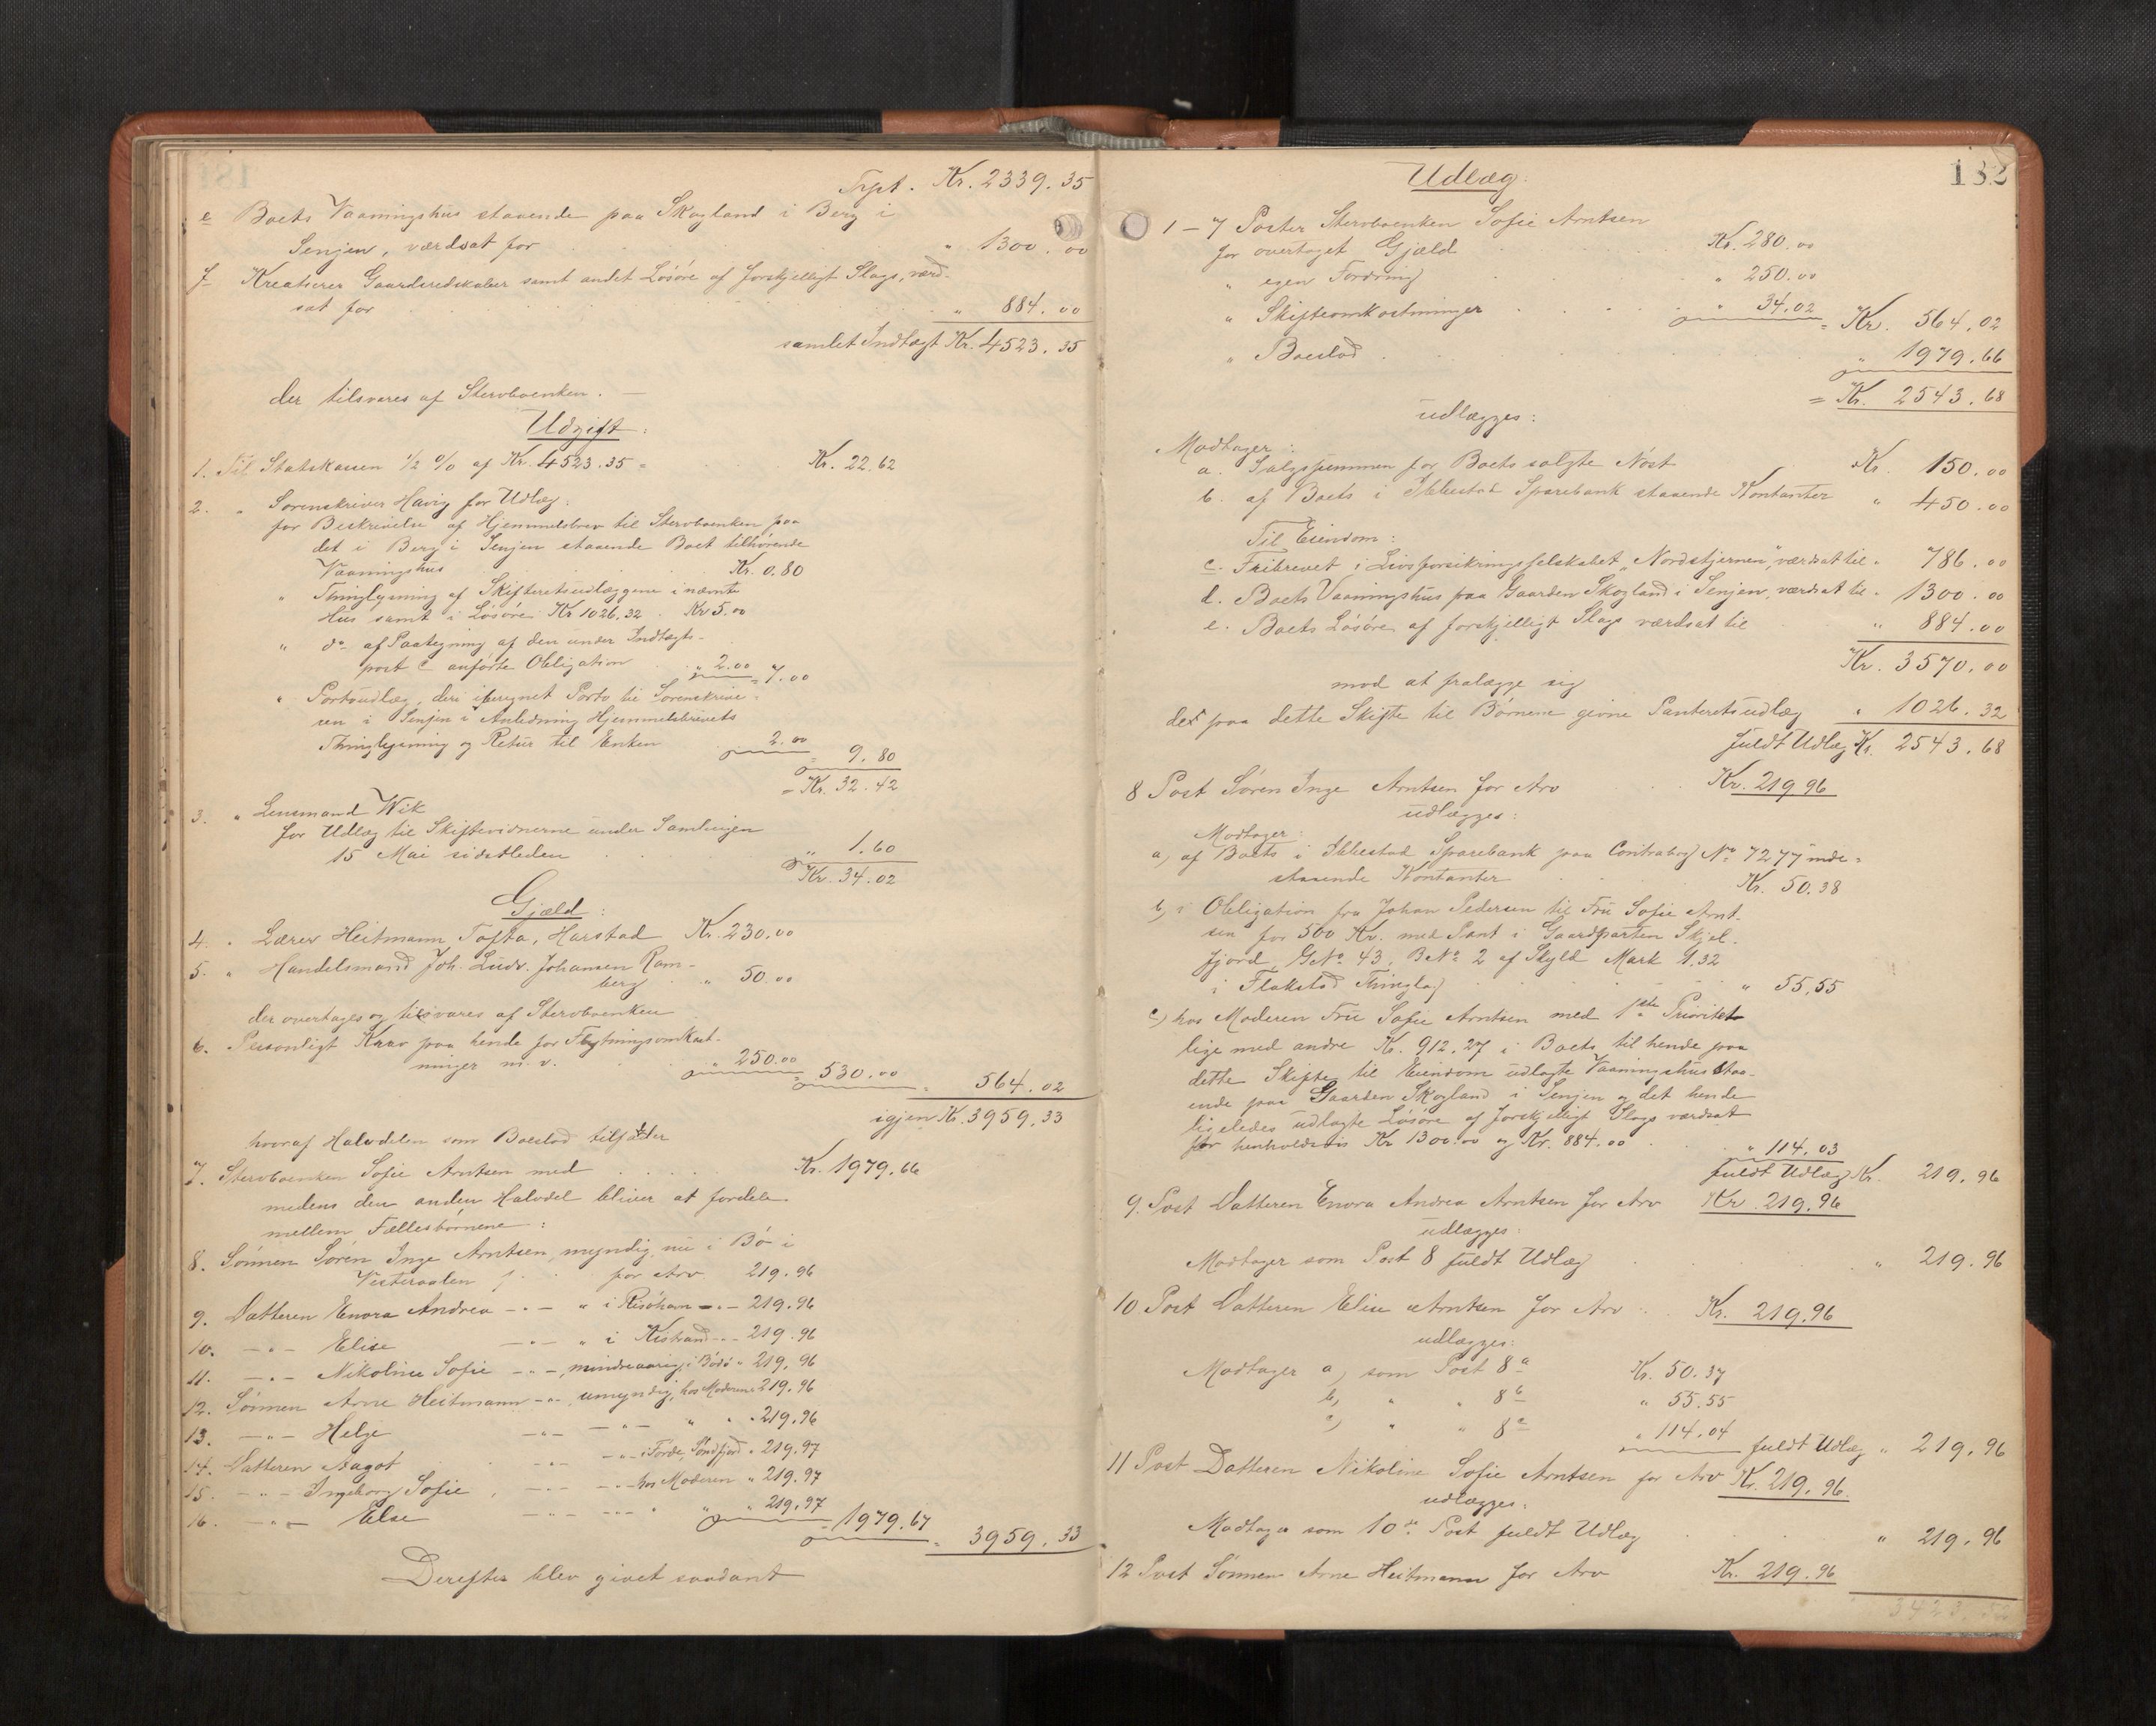 Trpt. Kr. 2339.35
e Boets Vaaningshus staaende paa Skogland i Berg i
Senjen, værdsat for " 1300.00
f Kreaturer Gaardsredskaber samt andet Løsøre af forskjelligt Slags, værd-
sat for " 884.00
samlet Indtægt Kr. 4523.35
der tilsvares af Stervboenken. —
Udgift:
1. Til Statskassen ½ % af Kr. 4523.35 = Kr. 22.62
2. " Sorenskriver Havig for Udlæg:
for Beskrivelse af Hjemmelsbrev til Stervboenken paa
det i Berg i Senjen staaende Boet tilhørende
Vaaningshus Kr. 0.80
" Thinglysning af Skifteretsudlæggene i nævnte
Hus samt i Løsøre Kr 1026.32 . Kr 5.00
" do af Paategning af den under Indtægts-
post c anførte Obligation " 2.00 = 7.00
" Portoudlæg, deri iberegnet Porto til Sorenskrive-
ren i Senjen i Anledning Hjemmelsbrevets
Thinglysning og Retur til Enken 2.00 = 9.80
= Kr. 32.42
3. " Lensmand Wik
for Udlæg til Skiftevidnerne under Samlingen
15 Mai sidstleden " 1.60
Kr. 34.02
Gjæld:
4. " Lærer Heitmann Tofta, Harstad Kr. 230.00
5. " Handelsmand Joh. Ludv. Johansen Ram-
berg " 50.00
der overtages og tilsvares af Stervboenken
6. Personligt Krav paa hende for Flytningsomkost-
ninger m.v. " 250.00 = 530.00 = 564.02
igjen Kr. 3959.33
hvoraf Halvdelen som Boeslod tilfalder
7. Stervboenken Sofie Arntsen med Kr. 1979.66
medens den anden Halvdel bliver at fordele
mellem Fællesbørnene:
8. Sønnen Søren Inge Arntsen, myndig, nu i Bø i
Vesteraalen for Arv 219.96
9. Datteren Enora Andrea —"— " i Risøhavn —"— 219.96
10. —"— Elise —"— " i Kistrand —"— 219.96
11. —"— Nikoline Sofie —"—, mindreaarig, i Bodø " 219.96
12. Sønnen Arne Heitmann —"—, umyndig, hos Moderen 219.96
13. —"— Helge —"— —"— " " 219.96
14. Datteren Aagot —"— —"— i Førde, Søndfjord " 219.97
15. —"— Ingeborg Sofie, —"— —"— hos Moderen " 219.97
16. —"— Else —"— —"— " " 219.97 = 1979.67 = 3959.33
Derefter blev givet saadant
182
Udlæg:
1 – 7 Poster Stervboenken Sofie Arntsen
for overtaget Gjæld Kr. 280.00
" egen Fordring " 250.00
" Skifteomkostninger " 34.02 = Kr. 564.02
" Boeslod " 1979.66
= Kr. 2543.68
udlægges:
Modtager:
a. Salgssummen for Boets solgte Nøst Kr. 150.00
b. af Boets i Ibbestad Sparebank staaende Kontanter " 450.00
Til Eiendom:
c. Fribrevet i Livsforsikringsselskabet „Nordstjernen", værdsat til " 786.00
d. Boets Vaaningshus paa Gaarden Skogland i Senjen, værdsat til " 1300.00
e. Boets Løsøre af forskjelligt Slags værdsat til " 884.00
Kr. 3570.00
mod at fralægge sig
det paa dette Skifte til Børnene givne Panteretsudlæg " 1026.32
fuldt Udlæg Kr. 2543.68
8 Post Søren Inge Arntsen for Arv Kr. 219.96
udlægges:
Modtager:
a) af Boets i Ibbestad Sparebank paa Contrabog No 7277 inde-
staaende Kontanter Kr. 50.38
b) i Obligation fra Johan Pedersen til Fru Sofie Arnt-
sen for 500 Kr. med Pant i Gaardparten Skjel-
fjord GNo 43, BNo 2 af Skyld Mark 1.32
i Flakstad Thinglag " 55.55
c) hos Moderen Fru Sofie Arntsen med 1ste Prioritet
lige med andre Kr. 912.27 i Boets til hende paa
dette Skifte til Eiendom udlagte Vaaningshus staa-
ende paa Gaarden Skogland i Senjen og det hende
ligeledes udlagte Løsøre af forskjelligt Slags værdsat
for henholdsvis Kr 1300.00 og Kr. 884.00 " 114.03
fuldt Udlæg Kr. 219.96
9. Post Datteren Enora Andrea Arntsen for Arv Kr. 219.96
udlægges:
Modtager som Post 8 fuldt Udlæg " 219.96
10 Post Datteren Elise Arntsen for Arv Kr. 219.96
udlægges:
Modtager a) som Post 8a Kr. 50.37
b) " " 8b " 55.55
c) " " 8c " 114.04 fuldt Udlæg " 219.96
11 Post Datteren Nikoline Sofie Arntsen for Arv Kr. 219.96.
udlægges:
Modtager som 10de Post fuldt Udlæg " 219.96
12 Post Sønnen Arne Heitmann for Arv Kr. 219.96